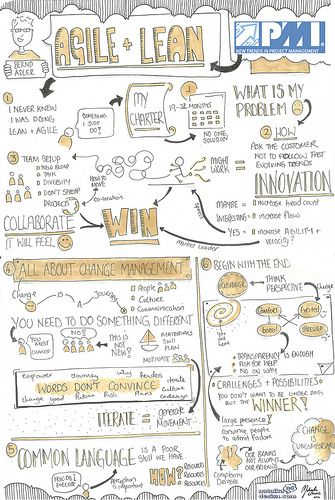 AGILE + LEAN
BERND
ADLER
PMI
NEW TRENDS IN PROJECT MANAGEMENT
1
I NEVER KNEW
I WAS DOING
LEAN + AGILE
SOMETHING
I JUST
DO!
MY
CHARTER
19-22 MONTHS
NO ONE
SOLUTION
WHAT IS MY
PROBLEM
2 HOW
ASK THE CUSTOMER
NOT TO FOLLOW FAST
EVOLVING TRENDS
INNOVATION
3 TEAM SETUP
DIVERSITY
PROJECTS
HOW TO
MOVE
co-location
MIGHT
WORK =
MAYBE = increase head count
INTERESTING = increase flow
YES = increase AGILITY +
VELOCITY?
Speed
Market Leader
COLLABORATE
IT WILL FEEL
WIN
4 ALL ABOUT CHANGE MANAGEMENT
Change IS A Journey
People
Culture
Communication
YOU NEED TO DO SOMETHING DIFFERENT
YOU
MUST
CHANGE
NO!
THIS IS
NOT
NEW!
MATERIALS
SKILL
PLAN
MOTIVATE
empower journey why leaders
WORDS DON'T CONVINCE
iterate
culture
change good future Risk Plans
ITERATE = generate
MOVEMENT
5 COMMON LANGUAGE IS A POOR
SKILL WE HAVE
HOW DO I
INFLUENCE
Perception
is important
HOW?
RESOURCES
RESOURCES
RESOURCES
6 BEGIN WITH THE END
CUSTOMER
THINK
PERSPECTIVE
Change
You
are
here
COMFORT
EXCITED
BORED
STRESSED
TRANSPARENCY IS ENOUGH
ASK FOR HELP
NO ON WHY
CHALLENGES + POSSIBILITIES
YOU DON'T WANT TO BE UNDER DOG
BUT THE WINNER!
large presence?
convince people
to admit failure
CHANGE
IS
UNCOMFORTABLE
OUR BRAINS ARE
NOT ALWAYS
OUR FRIENDS
Complexity
Drivers